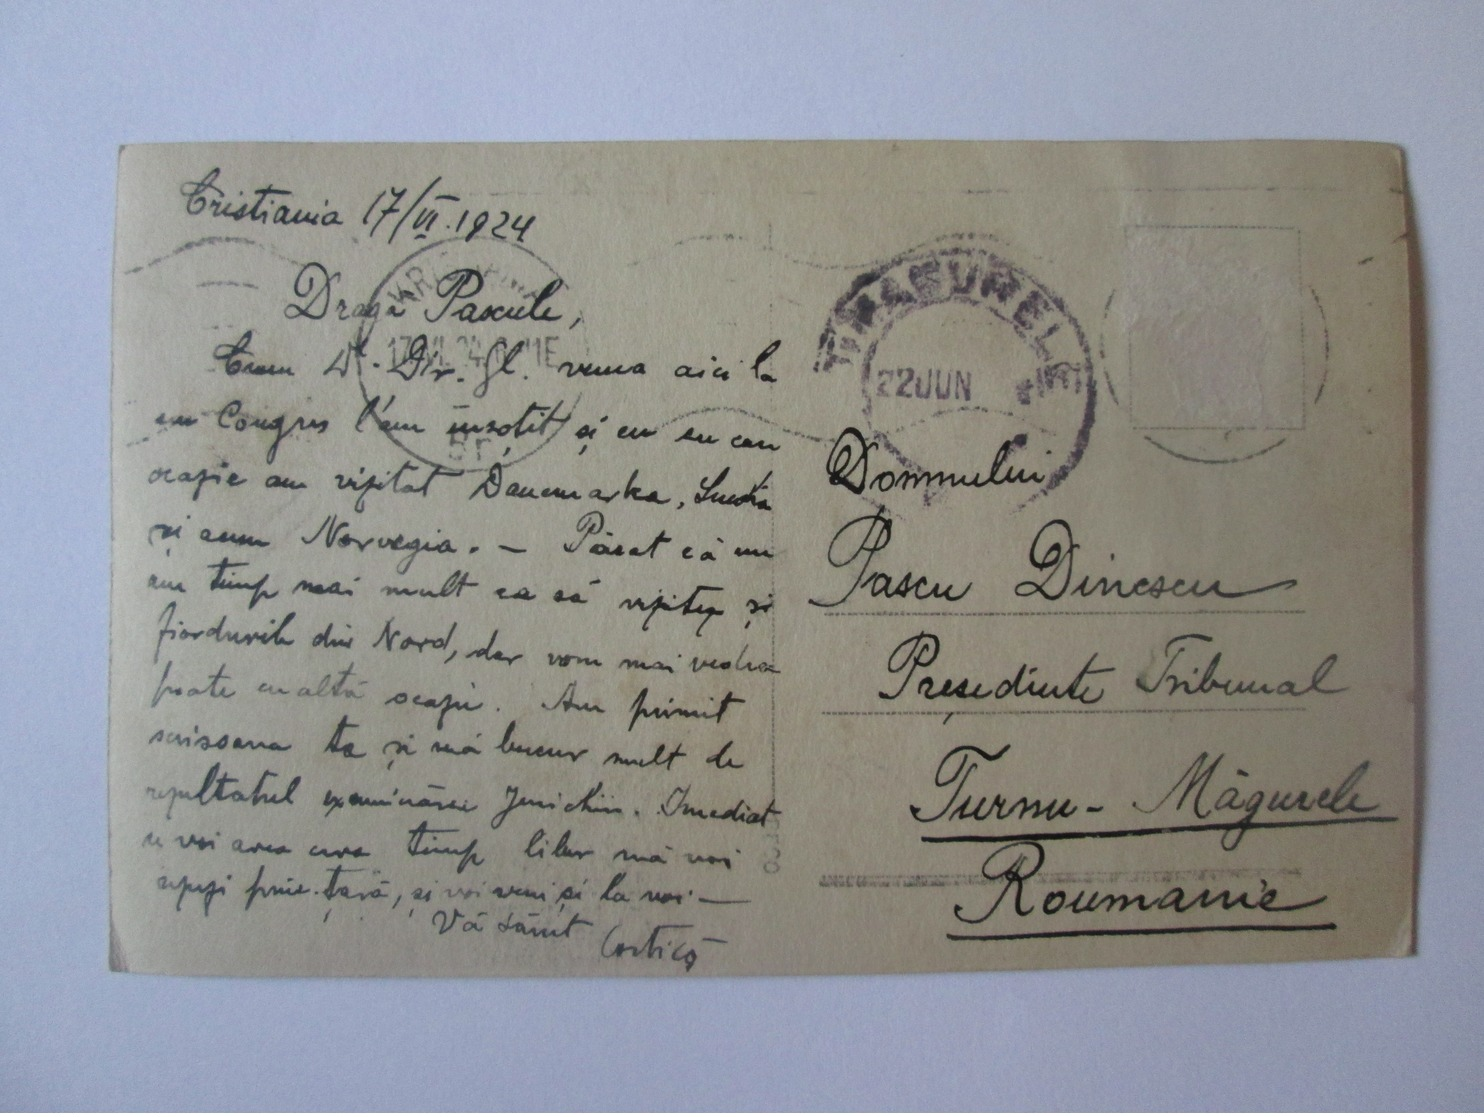 Cristiania 17/VI.1924
Dragă Pascule,
Cum Dl. Dir. Gl. venea aici la
un Congres l'am însoțit și cu eu cu
ocazie am vizitat Danemarka,
și acum Norvegia. — Păcat că nu
am timp mai mult ca să vizitez și
fiordurile din Nord, dar vom mai vedea
poate cu altă ocazie. Am primit
scrisoarea ta și mă bucur mult de
rezultatul examinărei. Imediat
ce voi avea ceva timp liber mă voi
repezi prin țară, și voi veni și la voi —
Vă sărut Costică
KRISTIANIA
17 VI 24
T. MAGURELE
22 JUN
Domnului
Pascu Dinescu
Președinte Tribunal
Turnu-Măgurele
Roumanie